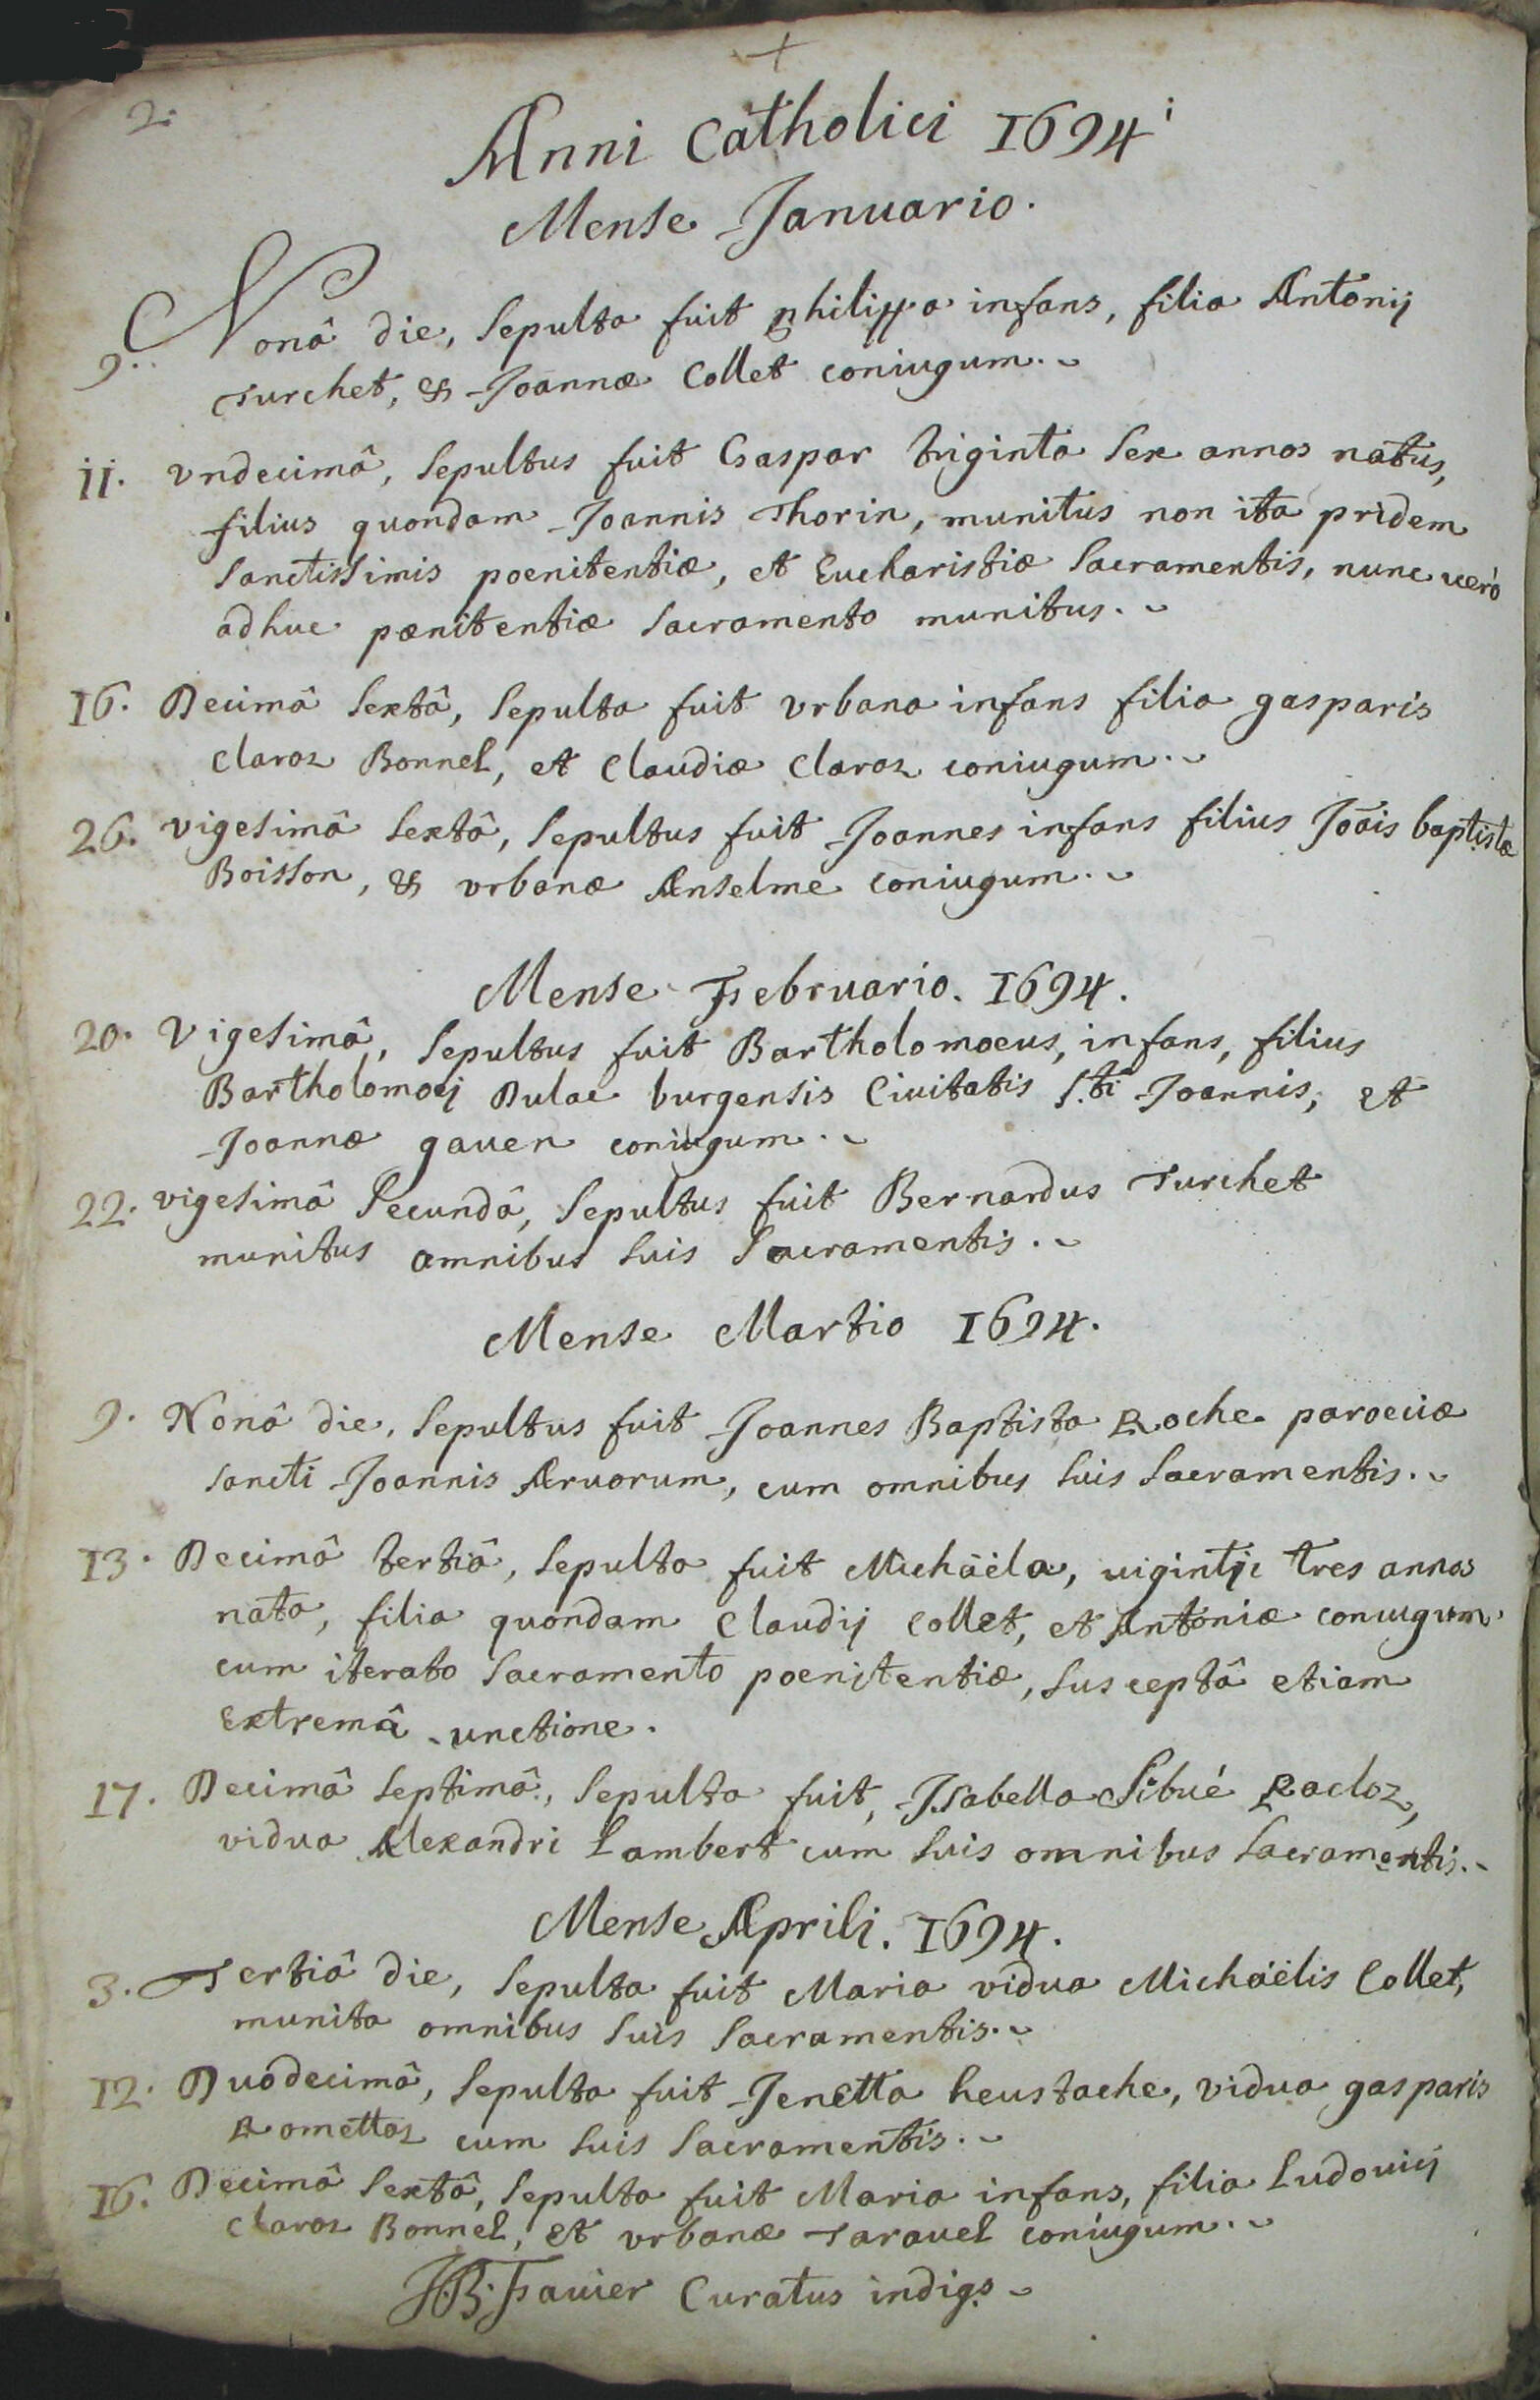 +
2.
Anni Catholici 1694i
Mense Januario.
9. Nonâ die, sepulta fuit philippa infans, filia Antonij
Turchet, & Joannæ Collet coniugum.
ii. vndecimâ, sepultus fuit Gaspar triginta sex annos natus,
filius quondam Joannis Thorin, munitus non ita pridem
sanctissimis poenitentiæ, et Eucharistiæ sacramentis, nunc uerò
adhuc pænitentiæ sacramento munitus.
16. Decimâ sextâ, sepulta fuit vrbana infans filia gasparis
Claraz Bonnel, et Claudiæ Claraz coniugum.
26. vigesimâ sextâ, sepultus fuit Joannes infans filius Joāis baptistæ
Boisson, & vrbanæ Anselme coniugum.
Mense Februario. 1694.
20. Vigesimâ, sepultus fuit Bartholomoeus, infans, filius
Bartholomoej Dulac burgensis Ciuitatis S.ti Joannis, et
Joannæ gauen coniugum.
22. vigesimâ secundâ, sepultus fuit Bernardus Turchet
munitus omnibus suis sacramentis.
Mense Martio 1694.
9. Nonâ die, sepultus fuit Joannes Baptista Roche paroeciæ
sancti Joannis Aruorum, cum omnibus suis sacramentis.
13. Decimâ tertiâ, sepulta fuit Michäela, uigintj tres annos
nata, filia quondam Claudij Collet, et Antoniæ coniugum,
cum iterato sacramento poenitentiæ, susceptâ etiam
Extremâ unctione.
17. Decimâ septimâ, sepulta fuit, Isabella Sibué Racloz,
vidua Alexandri Lambert cum suis omnibus sacramentis.
Mense Aprili. 1694.
3. Tertiâ die, sepulta fuit Maria vidua Michäelis Collet,
munita omnibus suis sacramentis.
12. Duodecimâ, sepulta fuit Jenetta heustache, vidua gasparis
Romettaz cum suis sacramentis.
16. Decimâ sextâ, sepulta fuit Maria infans, filia Ludouicj
Claraz Bonnel, et vrbanæ Tarauel coniugum.
J.B. Fauier Curatus indigs